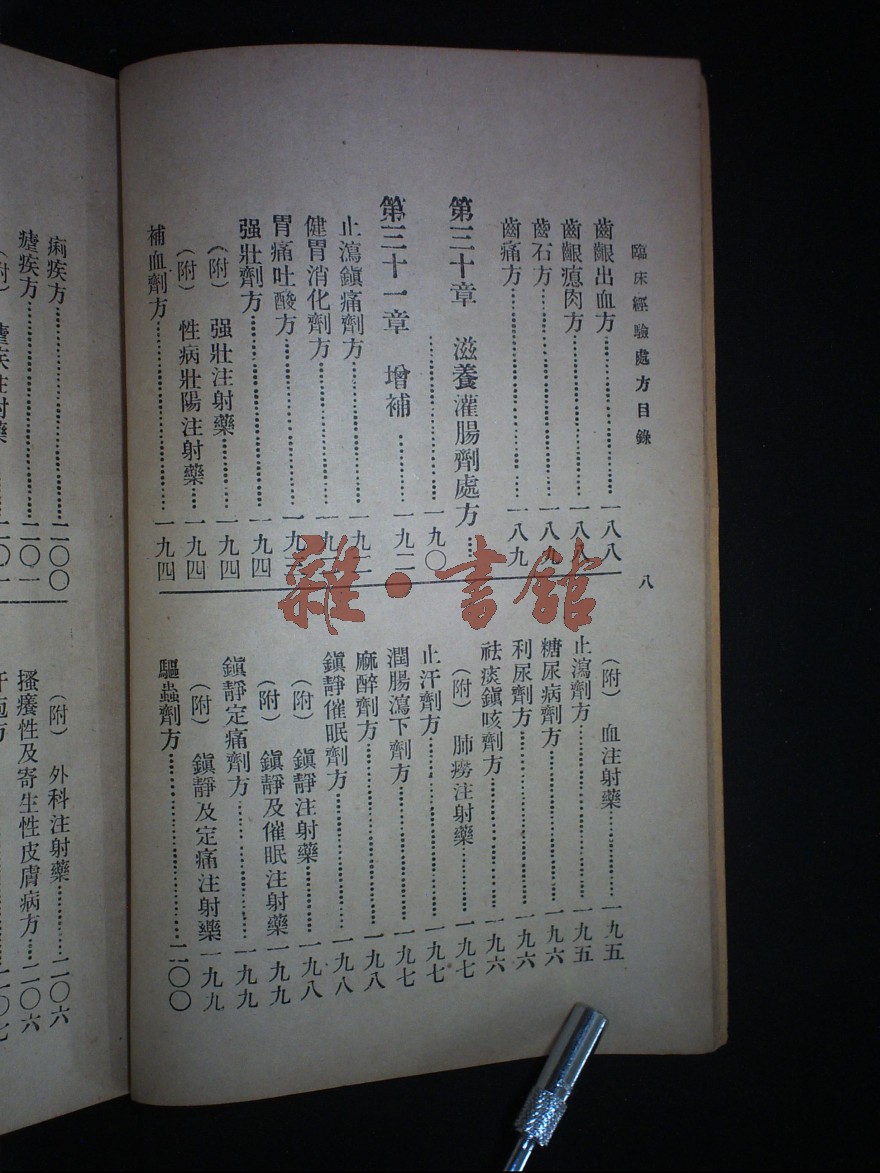 臨床經驗處方目錄
八
齒齦出血方……一八八
齒齦瘜肉方……一八八
齒石方……一八九
齒痛方……一八九
第三十章　滋養灌腸劑處方……
……一九〇
第三十一章　增補……一九二
止瀉鎮痛劑方……一九二
健胃消化劑方……一九二
胃痛吐酸方……一九三
强壯劑方……一九四
（附）　强壯注射藥……一九四
（附）　性病壯陽注射藥……一九四
補血劑方……一九四
（附）　血注射藥……一九五
止瀉劑方……一九五
糖尿病劑方……一九六
利尿劑方……一九六
祛痰鎮咳劑方……一九六
（附）　肺癆注射藥……一九七
止汗劑方……一九七
潤腸瀉下劑方……一九七
麻醉劑方……一九八
鎮靜催眠劑方……一九八
（附）　鎮靜注射藥……一九八
（附）　鎮靜及催眠注射藥　一九九
鎮靜定痛劑方……一九九
（附）　鎮靜及定痛注射藥　一九九
驅蟲劑方……二〇〇
痢疾方……二〇〇
瘧疾方……二〇一
（附）　瘧疾注射藥……二〇一
（附）　外科注射藥……二〇六
搔癢性及寄生性皮膚病方……二〇六
雜·書館